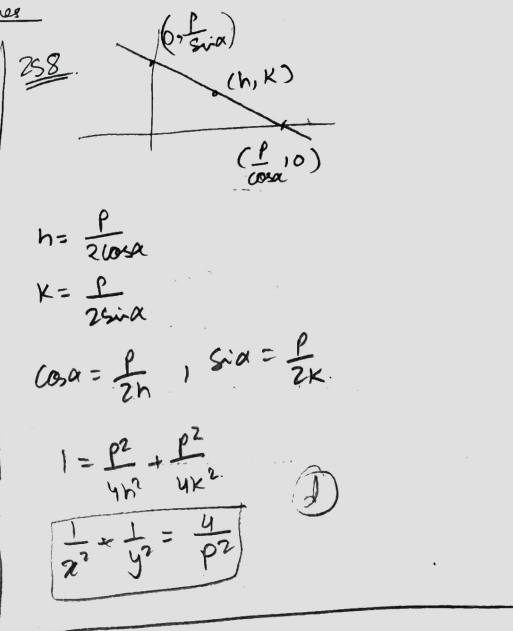 258.
(0, P/sinα)
(h, K)
(P/cosα, 0)
h = P/2cosα
K = P/2sinα
cosα = P/2h, sinα = P/2K.
1 = P²/4h² + P²/4K².
1/x² + 1/y² = 4/P²
d